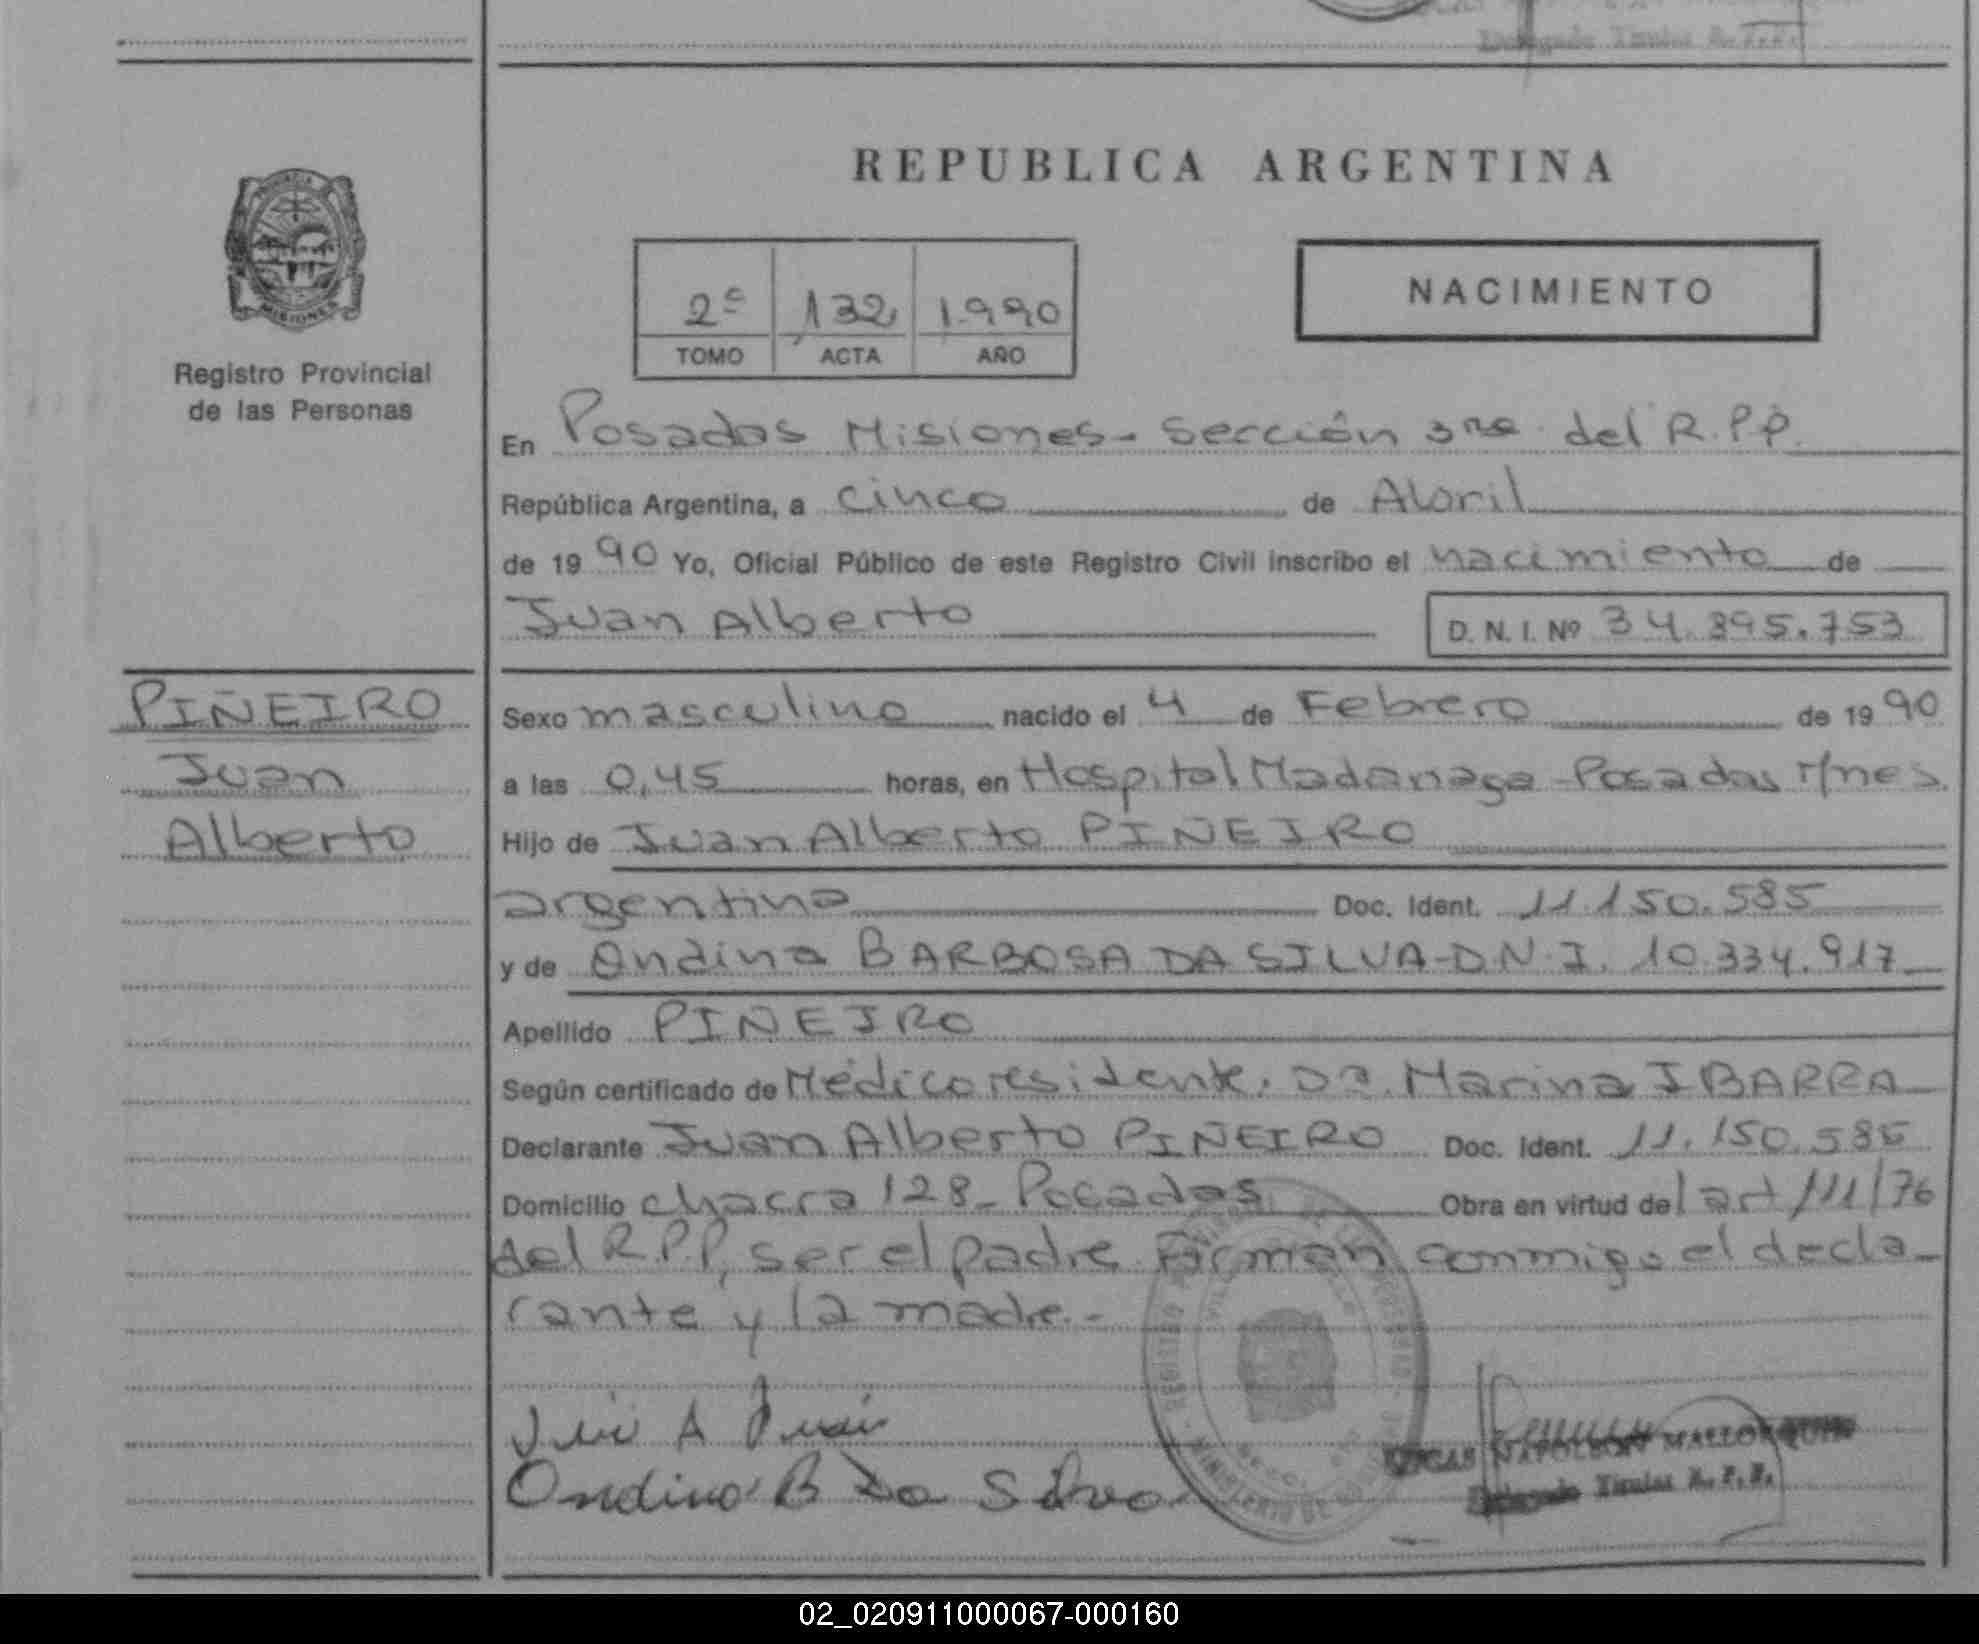 Delegado Titular R.P.P.
REPUBLICA ARGENTINA
MISIONES
Registro Provincial
de las Personas
2º 132 1990
TOMO ACTA AÑO
NACIMIENTO
En Posadas Misiones - Sección 3ra. del R.P.P.
República Argentina, a cinco de Abril
de 19 90 Yo, Oficial Público de este Registro Civil inscribo el nacimiento de
Juan Alberto D. N. I. Nº 34.895.753
PIÑEIRO
Juan
Alberto
Sexo masculino nacido el 4 de Febrero de 19 90
a las 0,45 horas, en Hospital Madariaga - Posadas M/nes.
Hijo de Juan Alberto PIÑEIRO
argentina Doc. Ident. 11.150.585
y de Ondina BARBOSA DA SILVA - D.N.I. 10.334.917
Apellido PIÑEIRO
Según certificado de Médico residente. Dra. Marina IBARRA
Declarante Juan Alberto PIÑEIRO Doc. Ident. 11.150.585
Domicilio chacra 128 - Posadas Obra en virtud del art 111/76
del R.P.P, ser el padre. Firman conmigo el decla-
rante y la madre.-
Ondina B Da Silva
LUCAS NAPOLEON MALLORQUIN
Delegado Titular R.P.P.
02_020911000067-000160